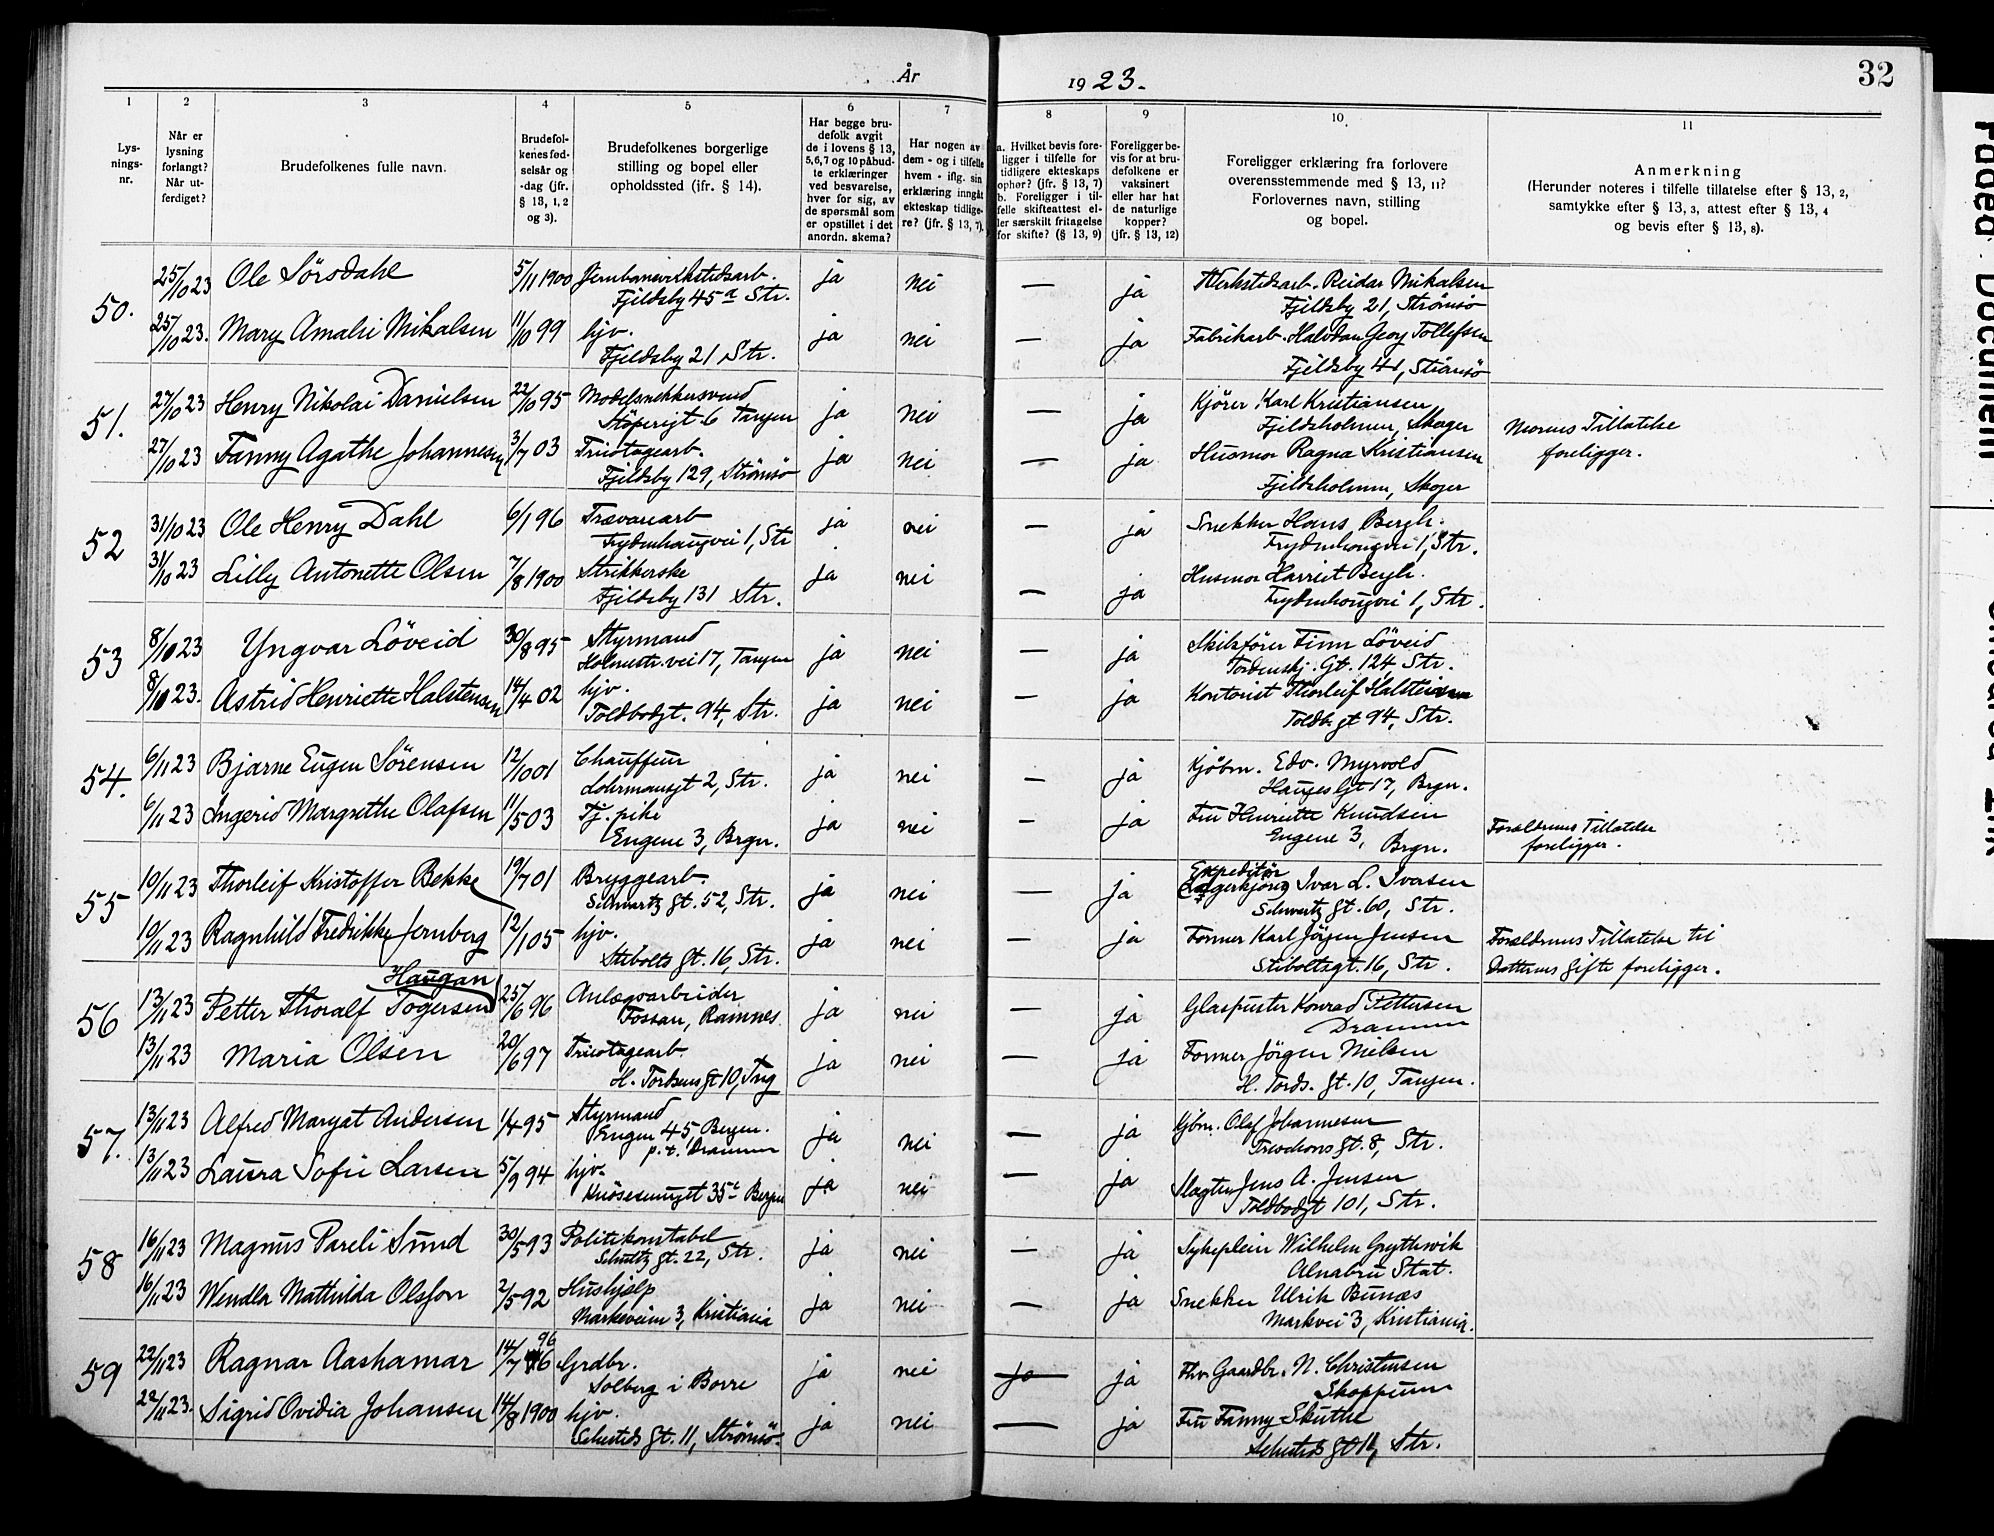 År
1923.
32
1
2
3
4
5
6
7
8
9
10.
11
Lys-
nings-
nr.
Når er
lysning
forlangt?
Når ut-
ferdiget?
Brudefolkenes fulle navn.
Brudefol-
kenes fød-
selsår og
-dag (jfr.
§ 13, 1, 2
og 3).
Brudefolkenes borgerlige
stilling og bopel eller
opholdssted (ifr. § 14).
Har begge bru-
defolk avgit
de i lovens § 13,
5,6,7 og 10 påbud-
te erklæringer
ved besvarelse,
hver for sig, av
de spørsmål som
er opstillet i det
anordn. skema?
Har nogen av
dem - og i tilfelle
hvem - iflg. sin
erklæring inngåt
ekteskap tidlige-
re? (jfr. § 13, 7).
a. Hvilket bevis fore-
ligger i tilfelle for
tidligere ekteskaps
ophør? (jfr. § 13, 7)
b. Foreligger i til-
felle skifteattest el-
ler særskilt fritagelse
for skifte? (§ 13, 9)
Foreligger be-
vis for at bru-
defolkene er
vaksinert
eller har hat
de naturlige
kopper?
(jfr. § 13, 12)
Foreligger erklæring fra forlovere
overensstemmende med § 13, 11?
Forlovernes navn, stilling
og bopel.
Anmerkning
(Herunder noteres i tilfelle tillatelse efter § 13, 2,
samtykke efter § 13, 3, attest efter § 13, 4
og bevis efter § 13, 8).
50.
25/10 23 Ole Sörsdahl 5/11 1900 Jernbaneverkstedsarb. ja nei — ja Verkstedsarb. Reidar Mikalsen
Fjeldsby 45a Str. Fjeldsby 21, Strömsö
25/10 23. Mary Amalie Mikalsen 11/10 99 hjv. ja nei — ja Fabrikarb. Halvdan Georg Tollefsen
Fjeldsby 21 Str. Fjeldsby 41, Strömsö
51.
27/10 23 Henry Nikolai Danielsen 22/10 95 Modelsnekkersvend ja nei — ja Kjörer Karl Kristiansen
Stöperigt. 6 Tangen Fjeldsholmen, Skoger
27/10 23 Fanny Agathe Johannesen 3/7 03 Tricotagearb. ja nei — ja Husmor Ragna Kristiansen
Morens Tillatelse
foreligger.
Fjeldsby 129, Strömsö Fjeldsholmen, Skoger
52
31/10 23 Ole Henry Dahl 6/1 96 Trævarearb ja nei — ja Snekker Hans Bergh.
Frydenhaugvei 1, Str Frydenhaugvei 1, Str.
31/10 23 Lilly Antonette Olsen 7/8 1900 Strikkerske ja nei — ja Husmor Harriet Bergh.
Fjeldsby 131 Str. Frydenhaugvei 1, Str.
53
8/10 23 Yngvar Löveid 30/8 95 Styrmand ja nei — ja Skibsförer Finn Löveid
Holmestr. vei 17, Tangen Tordenskj. Gt. 124, Str.
8/10 23. Astrid Henriette Halstensen 14/4 02 hjv. ja nei — ja Kontorist Thorleif Halstensen
Toldbodgt. 94, Str. Toldb. gt 94, Str.
54.
6/11 23 Bjarne Eugen Sörensen 12/10 01 Chauffeur ja nei — ja Kjöbm. Edv. Myrvold
Lohrmansgt 2, Str. Hauges Gt 17, Brgn.
6/11 23 Ingerid Margrethe Olafsen 11/5 03 Tj. pike ja nei — ja Fru Henriette Knudsen
Engene 3, Brgn. Engene 3, Brgn.
Forældrenes Tillatelse
foreligger.
55
10/11 23 Thorleif Kristoffer Bekke 19/7 01 Bryggearb. ja nei — ja Expeditör
Lagerkjörer Ivar L. Iversen
Schwartz gt. 52, Str. Schwartz gt. 60, Str.
10/11 23 Ragnhild Fredrikke Jernberg 12/1 05 hjv. ja nei — ja Former Karl Jörgen Jensen Forældrenes Tillatelse til
Stibolts gt. 16, Str. Stiboltsgt. 16, Str. Datterens Gifte foreligger.
56
Haugan
13/11 23 Petter Thoralf Togersen 25/6 96 Anlægsarbeider ja nei — ja Glaspuster Konrad Pettersen
Fossan, Ramnes Drammen
13/11 23 Maria Olsen 20/6 97 Tricotagearb. ja nei — ja Former Jörgen Nielsen
H. Tordsens gt 10, Tng H. Tords. gt. 10, Tangen.
57.
13/11 23 Alfred Maryat Andersen 1/4 95 Styrmand ja nei — ja Kjbm. Olaf Johannesen
Engen 45, Bergen. Treschows gt. 8, Str.
p.t. Drammen
13/11 23 Laura Sofie Larsen 5/9 94 hjv. ja nei — ja Slagter Jens A. Jensen
Knösesmuget 35 Bergen Toldbodgt 101, Str.
58
16/11 23 Magnus Pareli Sund 30/5 93 Politikonstabel ja nei — ja Sykepleier Wilhelm Gryttevik
Schultz gt. 22, Str. Alnabru Stat.
16/11 23 Wendla Mathilda Olsson 2/5 92 Hushjelp ja nei — ja Snekker Ulrik Bunæs
Markeveien 3, Kristiania Markvei 3, Kristiania.
59
22/11 23 Ragnar Aashamar 14/7 96 Grdbr. ja nei ja ja Fhv. Gaardbr. N. Christensen
Solberg i Borre Skoppum
22/11 23. Sigrid Ovidia Johansen 14/8 1900 hjv. ja nei — ja Fru Fanny Skuthe
Sehesteds gt. 11, Strömsö. Sehesteds gt 11, Str.